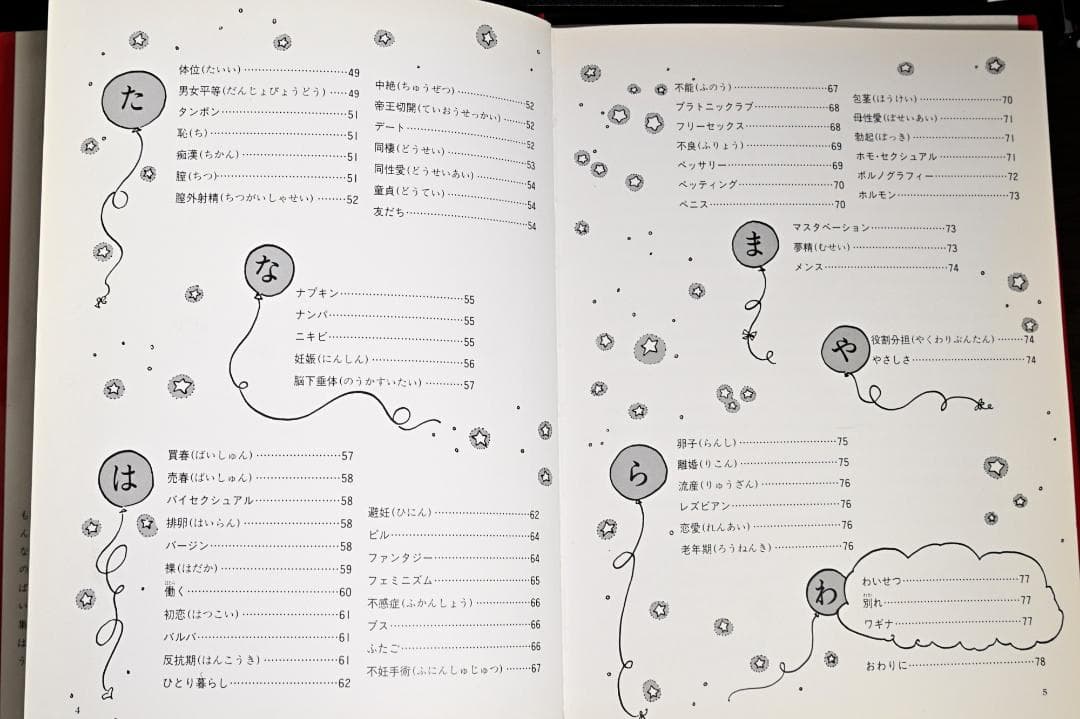 た
体位(たいい)…………………………49
男女平等(だんじょびょうどう)……49
タンポン……………………………51
恥(ち)………………………………51
痴漢(ちかん)………………………51
膣(ちつ)……………………………51
膣外射精(ちつがいしゃせい)………52
中絶(ちゅうぜつ)…………………52
帝王切開(ていおうせっかい)………52
デート………………………………52
同棲(どうせい)……………………53
同性愛(どうせいあい)……………54
童貞(どうてい)……………………54
友だち………………………………54
な
ナプキン……………………………55
ナンパ………………………………55
ニキビ………………………………55
妊娠(にんしん)……………………56
脳下垂体(のうかすいたい)………57
は
買春(ばいしゅん)…………………57
売春(ばいしゅん)…………………58
バイセクシュアル…………………58
排卵(はいらん)……………………58
バージン……………………………58
裸(はだか)…………………………59
働く…………………………………60
初恋(はつこい)……………………61
バルバ………………………………61
反抗期(はんこうき)………………61
ひとり暮らし………………………62
避妊(ひにん)………………………62
ピル…………………………………64
ファンタジー………………………64
フェミニズム………………………65
不感症(ふかんしょう)……………66
ブス…………………………………66
ふたご………………………………66
不妊手術(ふにんしゅじゅつ)……67
4
不能(ふのう)………………………67
プラトニックラブ…………………68
フリーセックス……………………68
不良(ふりょう)……………………69
ペッサリー…………………………69
ペッティング………………………70
ペニス………………………………70
包茎(ほうけい)……………………70
母性愛(ぼせいあい)………………71
勃起(ぼっき)………………………71
ホモ・セクシュアル………………71
ポルノグラフィー…………………72
ホルモン……………………………73
ま
マスタベーション…………………73
夢精(むせい)………………………73
メンス………………………………74
や
役割分担(やくわりぶんたん)……74
やさしさ……………………………74
ら
卵子(らんし)………………………75
離婚(りこん)………………………75
流産(りゅうざん)…………………76
レズビアン…………………………76
恋愛(れんあい)……………………76
老年期(ろうねんき)………………76
わ
わいせつ……………………………77
別れ…………………………………77
ワギナ………………………………77
おわりに……………………………78
5